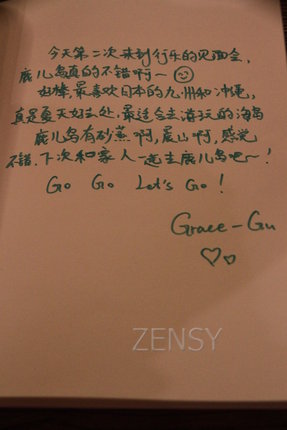 今天第二次来到行乐的见面会,
鹿儿岛真的不错啊~
好棒,最喜欢日本的九州和冲绳,
真是夏天好去处.最适合去游玩的海岛
鹿儿岛有砂蒸啊,尾山啊,感觉
不错.下次和家人一起去鹿儿岛吧~!
Go Go Let's Go!
Grace-Gu
ZENSY